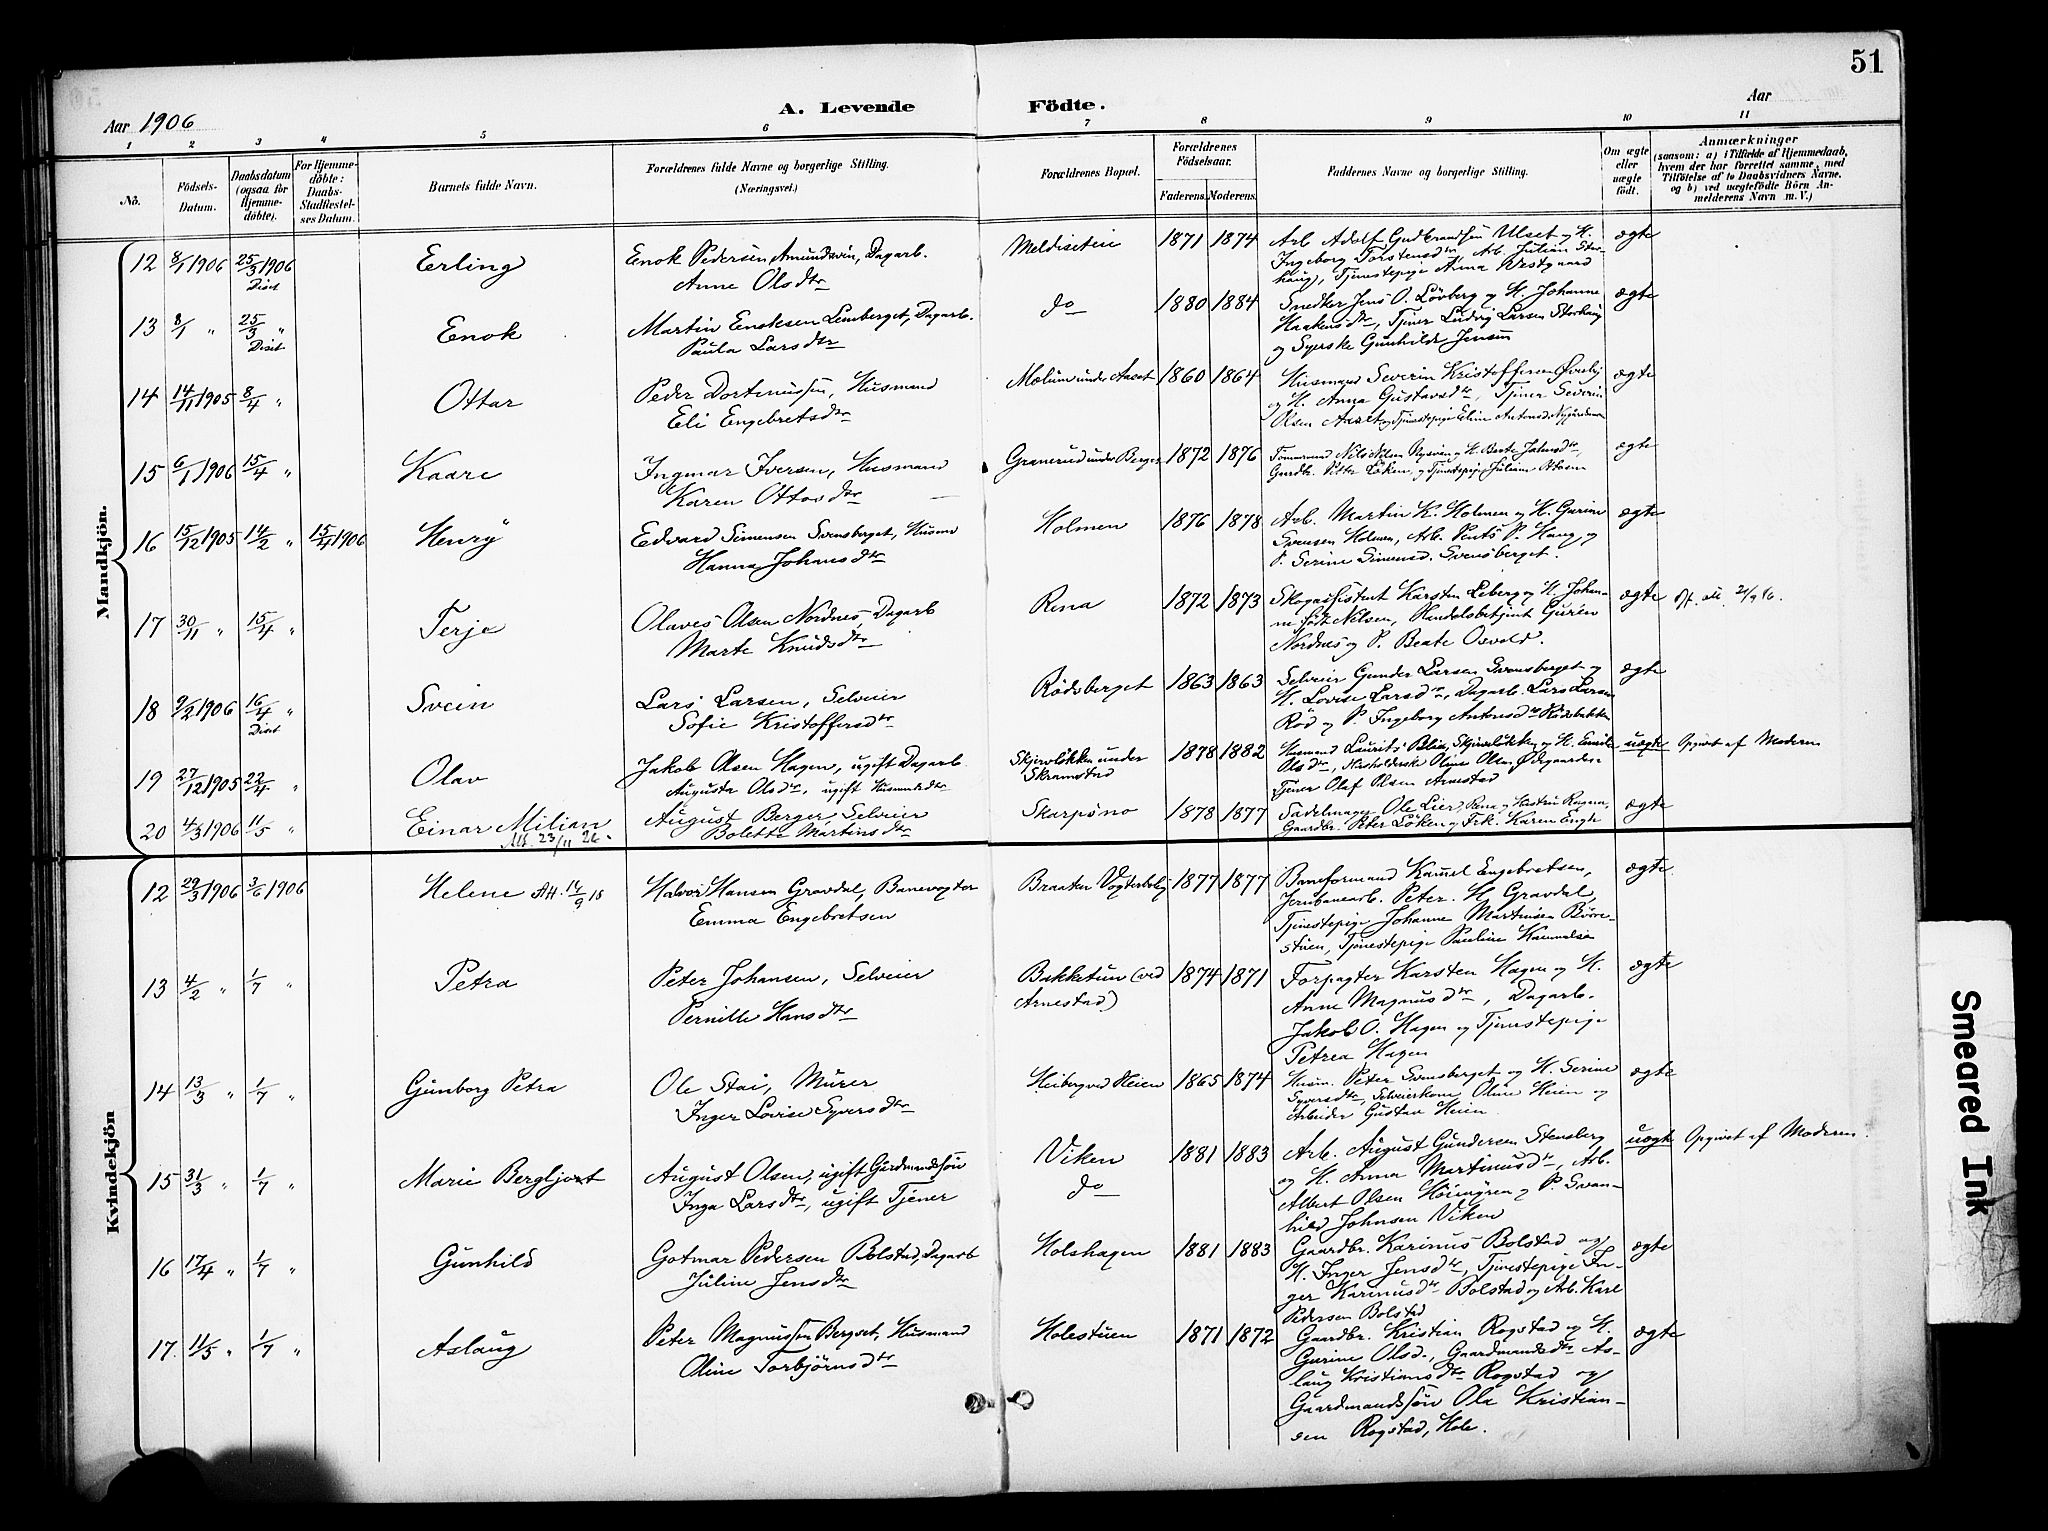 51
Aar 1906
A. Levende Födte.
Aar
1 2 3 4 5 6 7 8 9 10 11
No.
Födsels-Datum.
Daabsdatum (ogsaa for Hjemme-döbte).
For Hjemme-döbte: Daabs-Stadfæstel-ses Datum.
Barnets fulde Navn.
Forældrenes fulde Navne og borgerlige Stilling. (Næringsvei.)
Forældrenes Bopæl.
Forældrenes Födselsaar.
Faderens. Moderens.
Faddernes Navne og borgerlige Stilling.
Om ægte eller uægte födt.
Anmærkninger
(saasom: a) i Tilfælde af Hjemmedaab, hvem der har forrettet samme, med Tilföielse af to Daabsvidners Navne, og b) ved uægtefödte Börn Anmelderens Navn m. V.)
Mandkjön.
12 8/1 1906 25/3 1906 Diset Erling
Enok Pedersen Amundsvein, Dagarb.
Anne Olsdtr
1871 1874
Arb. Adolf Gudbrandsen Ulset og H.
Ingeborg Torstensdtr, Arb. Julian Stor-
haug, Tjenestepige Anna Vestgaard
ægte
13 8/1 " 25/3 " Diset Enok
Martin Enoksen Lemberget, Dagarb.
Paula Larsdtr
do 1880 1884
Snedker Jens O. Lövberg og H. Johanne
Haakensdtr, Tjener Ludvig Larsen Storhaug
og Syerske Gunhilde Jensen
ægte
14 14/11 1905 8/4 " Ottar
Peder Dortemussen, Husmand
Eli Engebretsdtr
Mælum under Aaset 1860 1864
Husmand Severin Kristoffersen Överby
og H. Anna Gustavsdtr, Tjener Severin
Olsen Aaset og Tjenestepige Eline Antonsd.
ægte
15 6/1 1906 15/4 " Kaare
Ingmar Iversen, Husmand
Karen Ottosdtr
Granerud under Berger 1872 1876
Gardbr. Peter Löken, og Tjenestepige Juliane Ottosen
ægte
16 15/12 1905 14/2 " 15/4 1906 Henry
Edvard Simensen Svensberget, Husmd
Hanna Johansdtr
Holmen 1876 1878
Arb. Martin K. Holmen og H. Gurine
Svensen Holmen, Arb. Pents P. Haug, og
P. Serine Simensd. Svensberget.
ægte
17 30/11 " 15/4 " Terje
Olaves Olsen Nordnes, Dagarb
Marte Knudsdtr
Rena 1872 1873
Skogassistent Karsten Leberg og H. Johan-
ne födt Nilsen, Handelsbetjent Guren
Nordnes og P. Beate Osvold.
ægte
18 9/2 1906 16/4 " Diset Svein
Lars Larsen, Selveier
Sofie Kristoffersdtr
Rödsberget 1863 1863
Selveier Gunder Larsen Svensberget og
H. Lovise Larsdtr, Dagarb. Lars Larsen
Röd og P. Ingeborg Antonsdtr Rödsbakken
ægte
19 27/12 1905 22/4 " Olav
Jakob Olsen Hagen, ugift Dagarb.
Augusta Olsdtr, ugift Husmdsdtr
Skjervlökken under
Skramstad
1878 1882
Husmand Laurits Skjervlökken og H. Emilie
Olsdtr, Husholderske Oline Olsen Ödegaarden
Tjener Olaf Olsen Arnestad
uægte
Opgivet af Moderen
20 4/3 1906 11/5 " Einar Milian
Att. 23/11 26.
August Berger, Selveier
Bolette Martinsdtr
Skarpsno 1878 1877
Sadelmager Ole Lier, Rena og Hustru Ragna,
Gaardbr. Peter Löken og Frk. Karen Engh
ægte
Kvindekjön
12 29/3 1906 3/6 1906 Helene Att. 14/9 18
Halvor Hansen Gravdal, Banevogter
Emma Engebretsen
Braaten Vogterbolig 1877 1877
Baneformand Kamel Engebretsen,
Jernbanearb. Peter H. Gravdal,
Tjenestepige Johanne Martinsen Börre-
stuen, Tjenestepige Pauline Kamelsen
ægte
13 4/2 " 1/7 " Petra
Peter Johansen, Selveier
Pernille Hansdtr
Bakketun (ved
Arnestad)
1874 1871
Forpagter Karsten Hagen og H.
Anne Magnusdtr, Dagarb.
Jakob O. Hagen og Tjenestepige
Petrea Hagen
ægte
14 13/3 " 1/7 " Gunborg Petra
Ole Stai, Murer
Inger Lovise Syversdtr
Heiberg ved Heien 1865 1874
Husm. Peter Svensberget og H. Serine
Syversdtr, Selveierkone Oline Heien og
Arbeider Gustav Heien
ægte
15 31/3 " 1/7 " Marie Bergljot
August Olsen, ugift Gardmandssön
Inga Larsdtr, ugift Tjener
Viken
do
1881 1883
Arb. August Gundersen Stensberg
og H. Anna Martinusdtr, Arb.
Albert Olsen og P. Svan-
hild Johnsen Viken
uægte
Opgivet af Moderen.
16 17/4 " 1/7 " Gunhild
Gotmar Pedersen Bolstad, Dagarb
Juline Jensdtr
Holshagen 1881 1883
Gaardbr. Karinus Bolstad og
H. Inger Jensdtr, Tjenestepige In-
ger Karinusdtr Bolstad og Arb. Karl
Pedersen Bolstad
ægte
17. 11/5 " 1/7 " Aslaug
Peter Magnussen Bergset, Husmand
Oline Torbjörnsdtr
Holestuen 1871 1872
Gaardbr. Kristian Rogstad og H.
Gurine Olsd., Gaardmandsdtr As-
laug Kristiansdtr Rogstad og
Gaardmandssön Ole Kristian-
sen Rogstad, Hole.
ægte
Smeared Ink